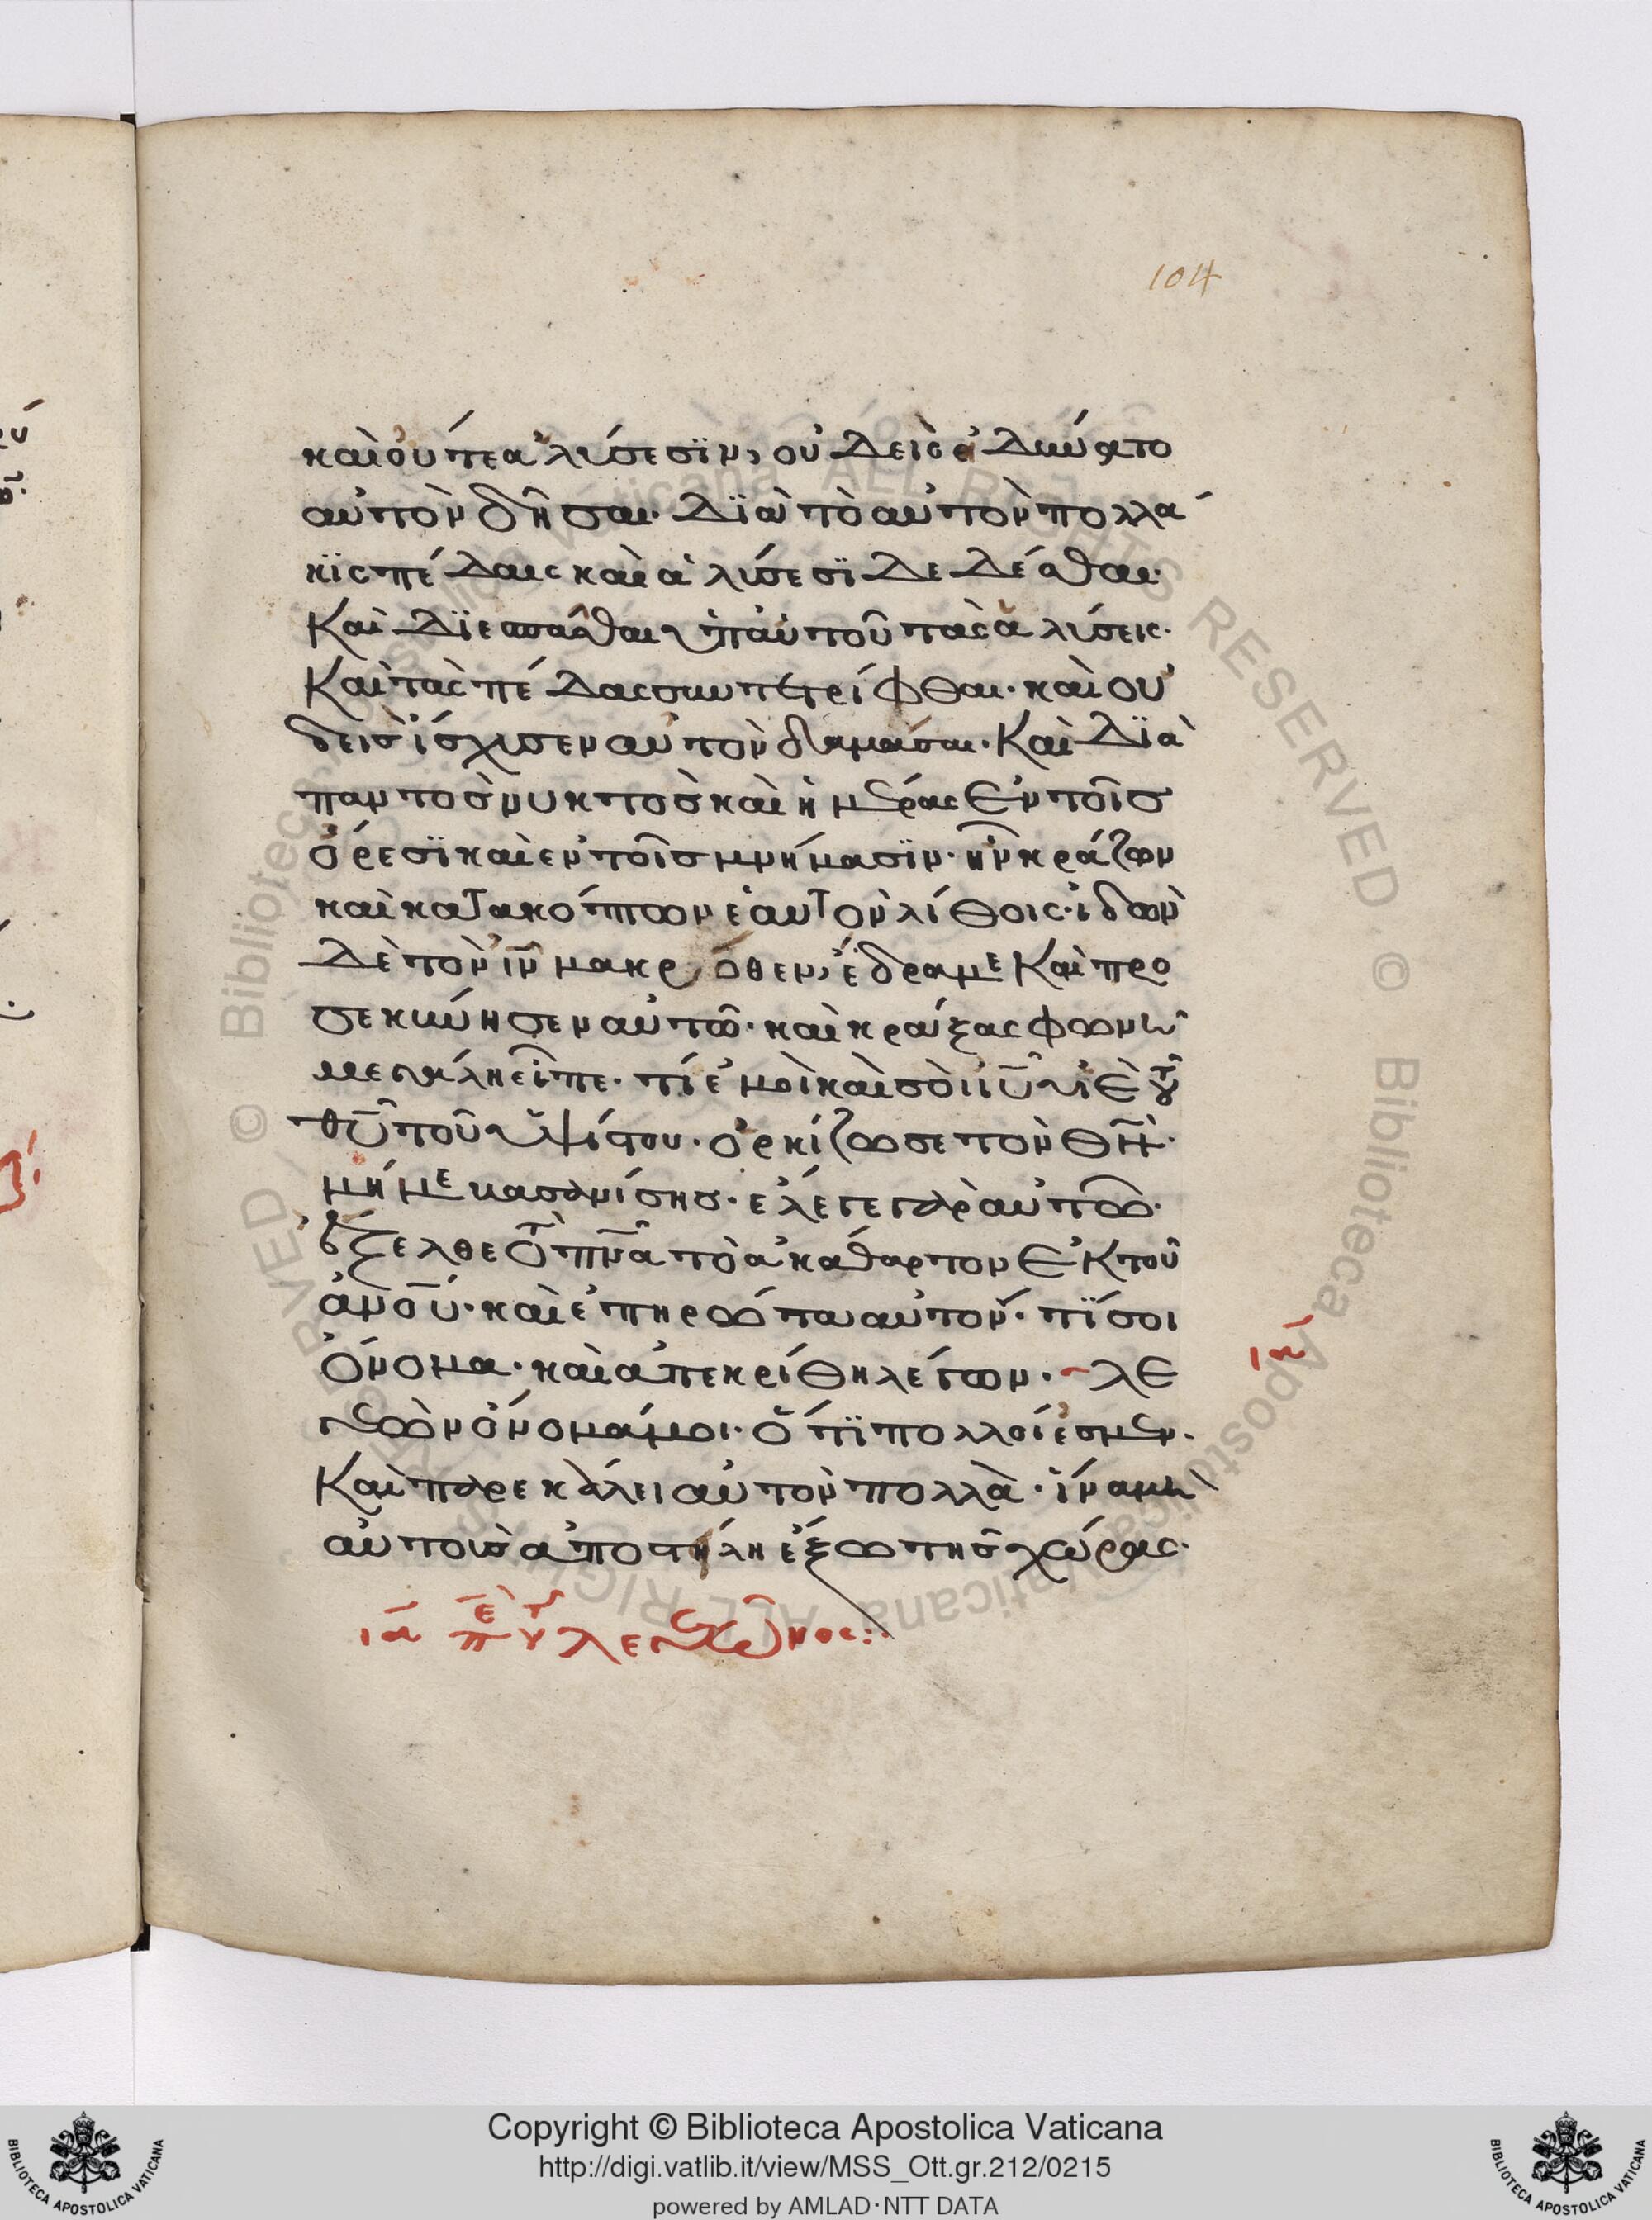 104
καὶ οὔτε ἁλύσεσϊν, οὐδεὶς ἐδύνατο
αὐτὸν δῆσαι· δϊὰ τὸ αὐτὸν πολλά
κϊς πέδαις καὶ ἁλύσεσϊ δεδέσθαι·
Καὶ δϊεσπᾶσθαι ὑπ' αὐτοῦ τὰς ἁλύσεις·
Καὶ τὰς πέδας συντετρίφθαι· καὶ οὐ
δεὶς ἴσχυσεν αὐτὸν δαμάσαι· Καὶ δϊὰ
παντὸς νυκτὸς καὶ ἡμέρας ἐν τοῖς
ὄρεσϊ καὶ ἐν τοῖς μνήμασϊν· ἦν κράζων
καὶ κατακόπτων ἑαυτὸν λίθοις· ἰδὼν
δὲ τὸν ἰν̄ μακρόθεν, ἔδραμε Καὶ προ
σεκύνησεν αὐτῶ· καὶ κράξας φωνῆ
μεγάλη εἶπε· τί ἐμοὶ καὶ σοὶ ἰῡ υἱὲ τοῦ
θῡ τοῦ ὑψίστου· ὁρκίζω σε τὸν θν̄·
μή με βασανίσης· ἔλεγε γὰρ αὐτῶ·
ἔξελθε τὸ πν̄α τὸ ἀκάθαρτον ἐκ τοῦ
ἀνοῡ· καὶ ἐπηρώτα αὐτόν· τί σοι
ὄνομα· καὶ ἀπεκρίθη λέγων· λε
γεὼν ὄνομά μοι· ὅτϊ πολλοί ἐσμεν·
Καὶ παρεκάλει αὐτὸν πολλὰ· ἵνα μὴ
αὐτοὺς ἀποστείλη ἔξω τῆς χώρας·
ια περὶ τοῦ λεγεῶνος:·
ια
Copyright © Biblioteca Apostolica Vaticana
http://digi.vatlib.it/view/MSS_Ott.gr.212/0215
powered by AMLAD·NTT DATA